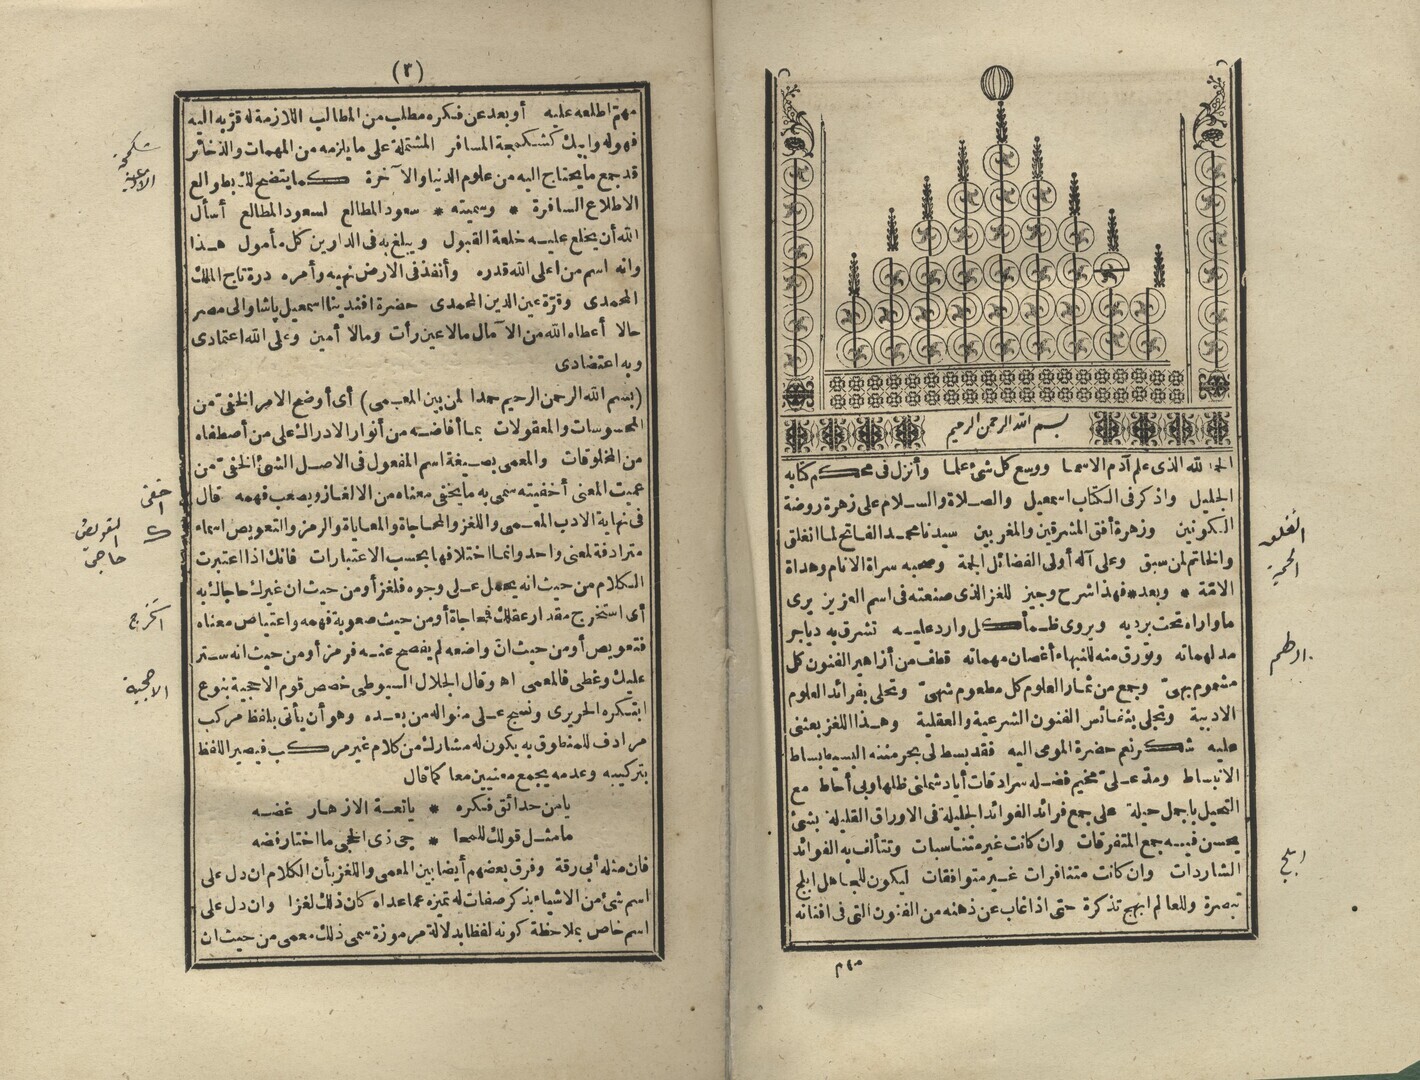 بسم الله الرحمن الرحيم
الحمد لله الذى علم آدم الاسما ووسع كل شئ علما وأنزل فى محكم كتابه
الجليل واذكر فى الكتاب اسمعيل والصلاة والسلام على زهرة روضة
الكونين وزهرة أفق المشرقين والمغربين سيدنا محمد الفاتح لما انغلق
والخاتم لمن سبق وعلى آله أولى الفضائل الجمة وصحبه سراة الانام وهداة
الامّة * وبعد * فهذا شرح وجيز للغز الذى صنعته فى اسم العزيز يرى
ما واراه تحت برديه ويروى ظمأ كل وارد عليه تشرق به دياجر
مدلهماته وتورق منه للنبهاء أغصان مهماته قطف من أزاهير الفنون كل
مشموم بهىّ وجمع من ثمار العلوم كل مطعوم شهىّ وتحلى بفرائد العلوم
الادبية وتجلى بنفائس الفنون الشرعية والعقلية وهذا اللغز بعثنى
عليه شكر نعم حضرة المومى اليه فقد بسط لى بحر مننه البسيط بساط
الانبساط ومدّ علىّ مخيم فضله سرادقات أياد شملنى ظلها وبى أحاط مع
التحيل باجمل حيلة على جمع فرائد الفوائد الجليلة فى الاوراق القليلة بشئ
يحسن فيه جمع المتفرقات وان كانت غير متناسبات وتتألف به الفوائد
الشاردات وان كانت متنافرات غير متوافقات ليكون للجاهل ابلج
تبصرة وللعالم ابهج تذكرة حتى اذا غاب عن ذهنه من الفنون التى فى افنانه
ابلج
(٢)
مهمّ اطلعه عليه أو بعد عن فكره مطلب من المطالب اللازمة له قرّبه اليه
فهو له وابيك كشكمجة المسافر المشتملة على ما يلزمه من المهمات والذخائر
قد جمع ما يحتاج اليه من علوم الدنيا والآخرة كما يتضح لك بطوالع
الاطلاع السافرة * وسميته * سعود المطالع لسعود المطالع أسأل
الله أن يخلع عليه خلعة القبول ويبلغ به فى الدارين كل مأمول هذا
وانه اسم من اعلى الله قدره وأنفذ فى الارض نهيه وأمره درة تاج الملك
المحمدى وقرّة عين الدين المحمدى حضرة افندينا اسمعيل باشا والى مصر
حالا أعطاه الله من الآمال مالا عين رأت ومالا أمين وعلى الله اعتمادى
وبه اعتضادى
(بسم الله الرحمن الرحيم حمدا لمن بين المعمى) أى أوضع الامر الخفىّ من
المحسوسات والمعقولات بما أفاضه من أنوار الادراك على من أصطفاه
من المخلوقات والمعمى بصيغة اسم المفعول فى الاصل الشئ الخفىّ من
عميت المعنى أخفيته سمى به ما يخفى معناه من الالغاز ويصعب فهمه قال
فى نهاية الادب المعمى واللغز والمحاجاة والمعاياة والرمز والتعويص اسماء
مترادفة لمعنى واحد وانما اختلافها بحسب الاعتبارات فانك اذا اعتبرت
الكلام من حيث انه يحمل على وجوه فلغز أو من حيث ان غيرك حاجاك به
أى استخرج مقدار عقلك فمحاجاة أو من حيث صعوبة فهمه واعتياص معناه
فتعويص أو من حيث ان واضعه لم يفصح عنه فرمز أو من حيث انه ستر
عليك وغطى فالمعمى اه وقال الجلال السيوطى خصص قوم الاحجية بنوع
ابتكره الحريرى ونسج على منواله من بعده وهو أن يأتى بلفظ مركب
مرادف للمنطوق به يكون له مشارك من كلام غير مركب فيصير اللفظ
بتركيبه وعدمه يجمع معنيين معا كما قال
يا من حدائق فكره * يانعة الازهار غضه
ما مثل قولك للمحا * جى ذى الحجى ما اختار فضه
فان مثله أبى رقة وفرق بعضهم أيضا بين المعمى واللغز بأن الكلام ان دل على
اسم شئ من الاشياء بذكر صفات له تميزه عما عداه كان ذلك لغزا وان دل على
اسم خاص بملاحظة كونه لفظا بدلالة مرموزة سمى ذلك معمى من حيث ان
الاحجية